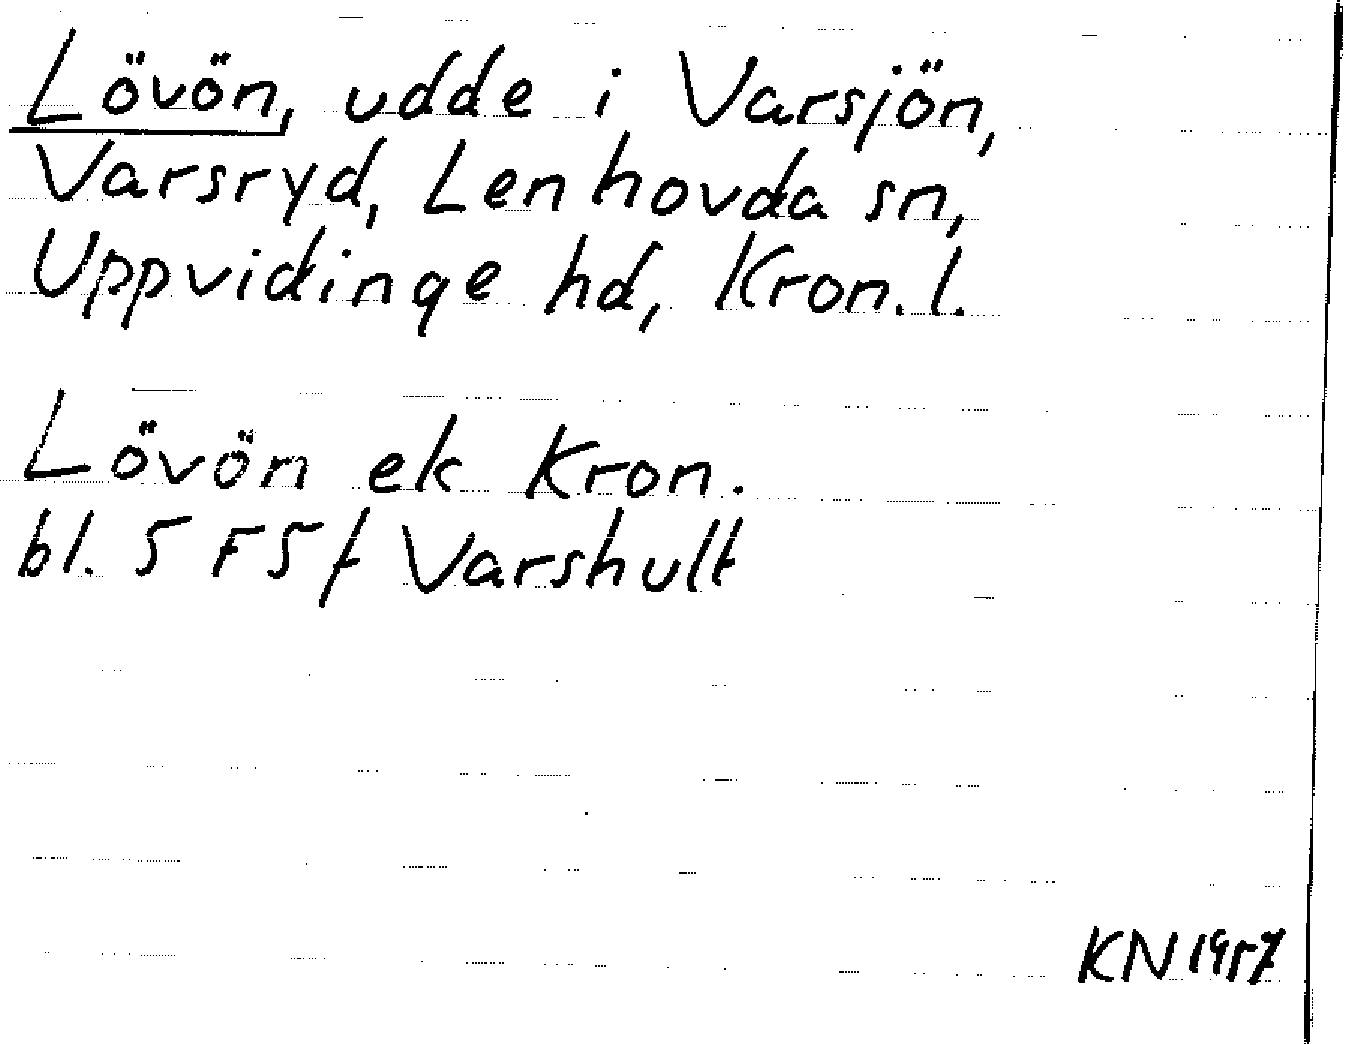 Lövön, udde i Varsjön,
Varsryd, Lenhovda sn,
Uppvidinge hd, Kron. l.
Lövön ek Kron.
bl. 5 F 5 f Varshult
KN 1957